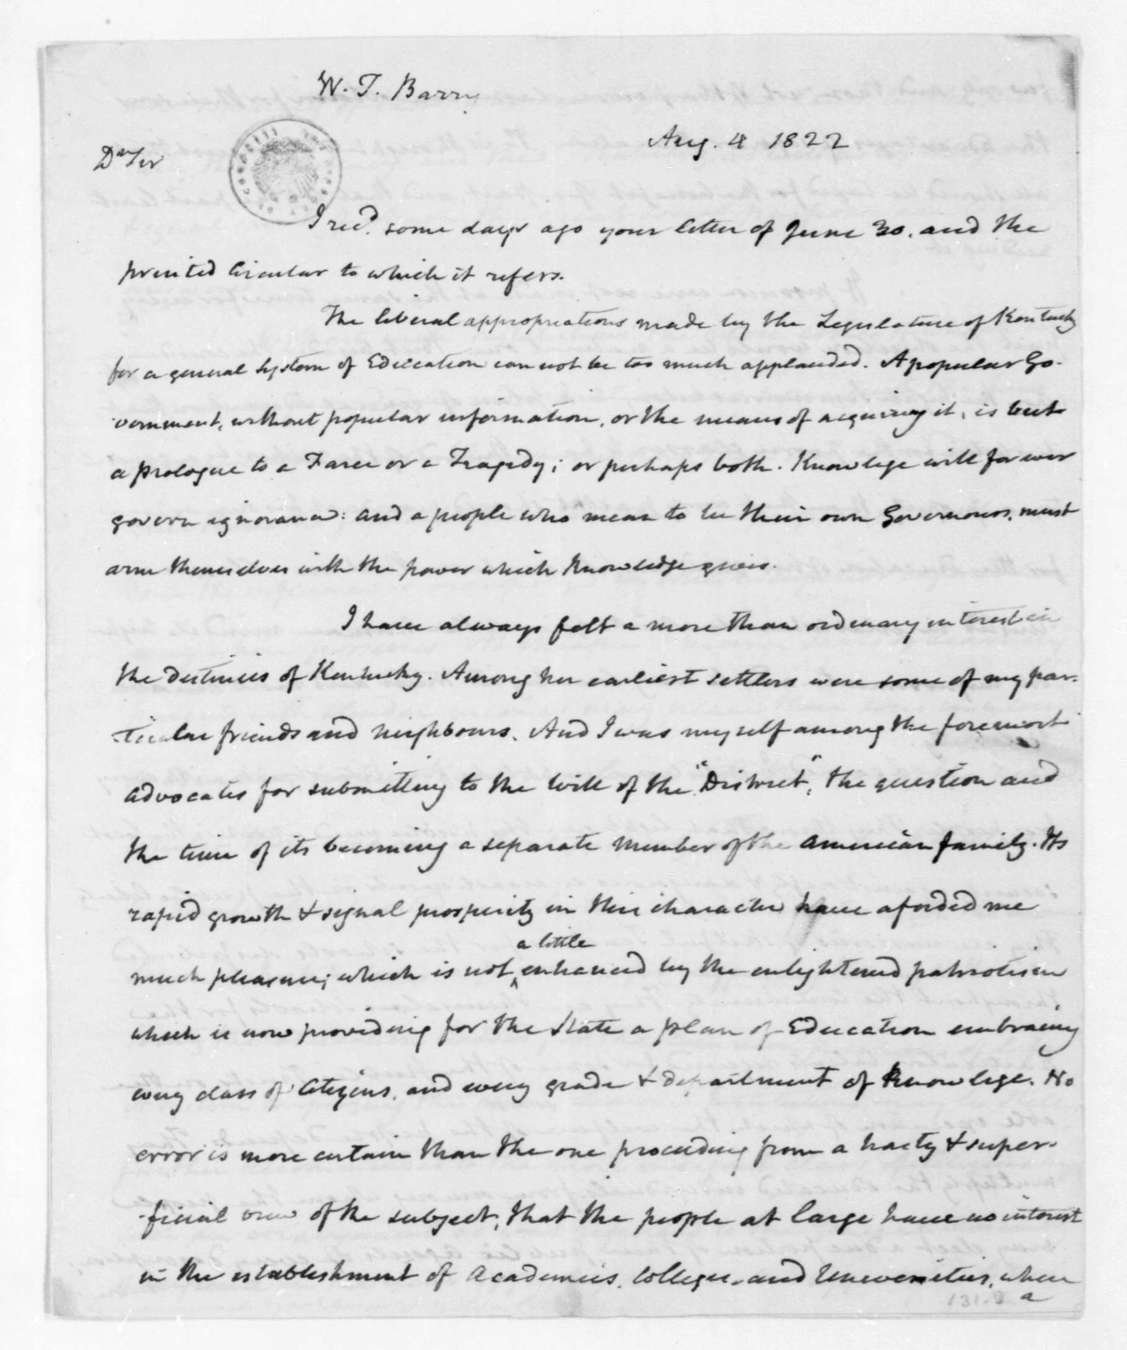 W. T. Barry
Aug. 4 1822
Dr Sir
I recd. some days ago your letter of June 30. and the
printed Circular to which it refers.
The liberal appropriations made by the Legislature of Kentucky
for a general System of Education cannot be too much applauded. A popular Go-
vernment, without popular information, or the means of acquiring it, is but
a prologue to a Farce or a Tragedy; or perhaps both. Knowlege will forever
govern ignorance: and a people who mean to be their own Governours, must
arm themselves with the power which knowledge gives.
I have always felt a more than ordinary interest in
the destinies of Kentucky. Among her earliest settlers were some of my par-
ticular friends and neighbours. And I was myself among the foremost
advocates for submitting to the Will of the "District", the question and
the time of its becoming a separate member of the American family. Its
rapid growth & signal prosperity in this character have aforded me
a little
much pleasure; which is not enhanced by the enlightened patriotism
which is now providing for the State a plan of Education embracing
every class of Citizens, and every grade & department of Knowlege. No
error is more certain than the one proceeding from a hasty & super-
ficial view of the subject, that the people at large have no interest
in the establishment of Academies, Colleges, and Universities, where
a